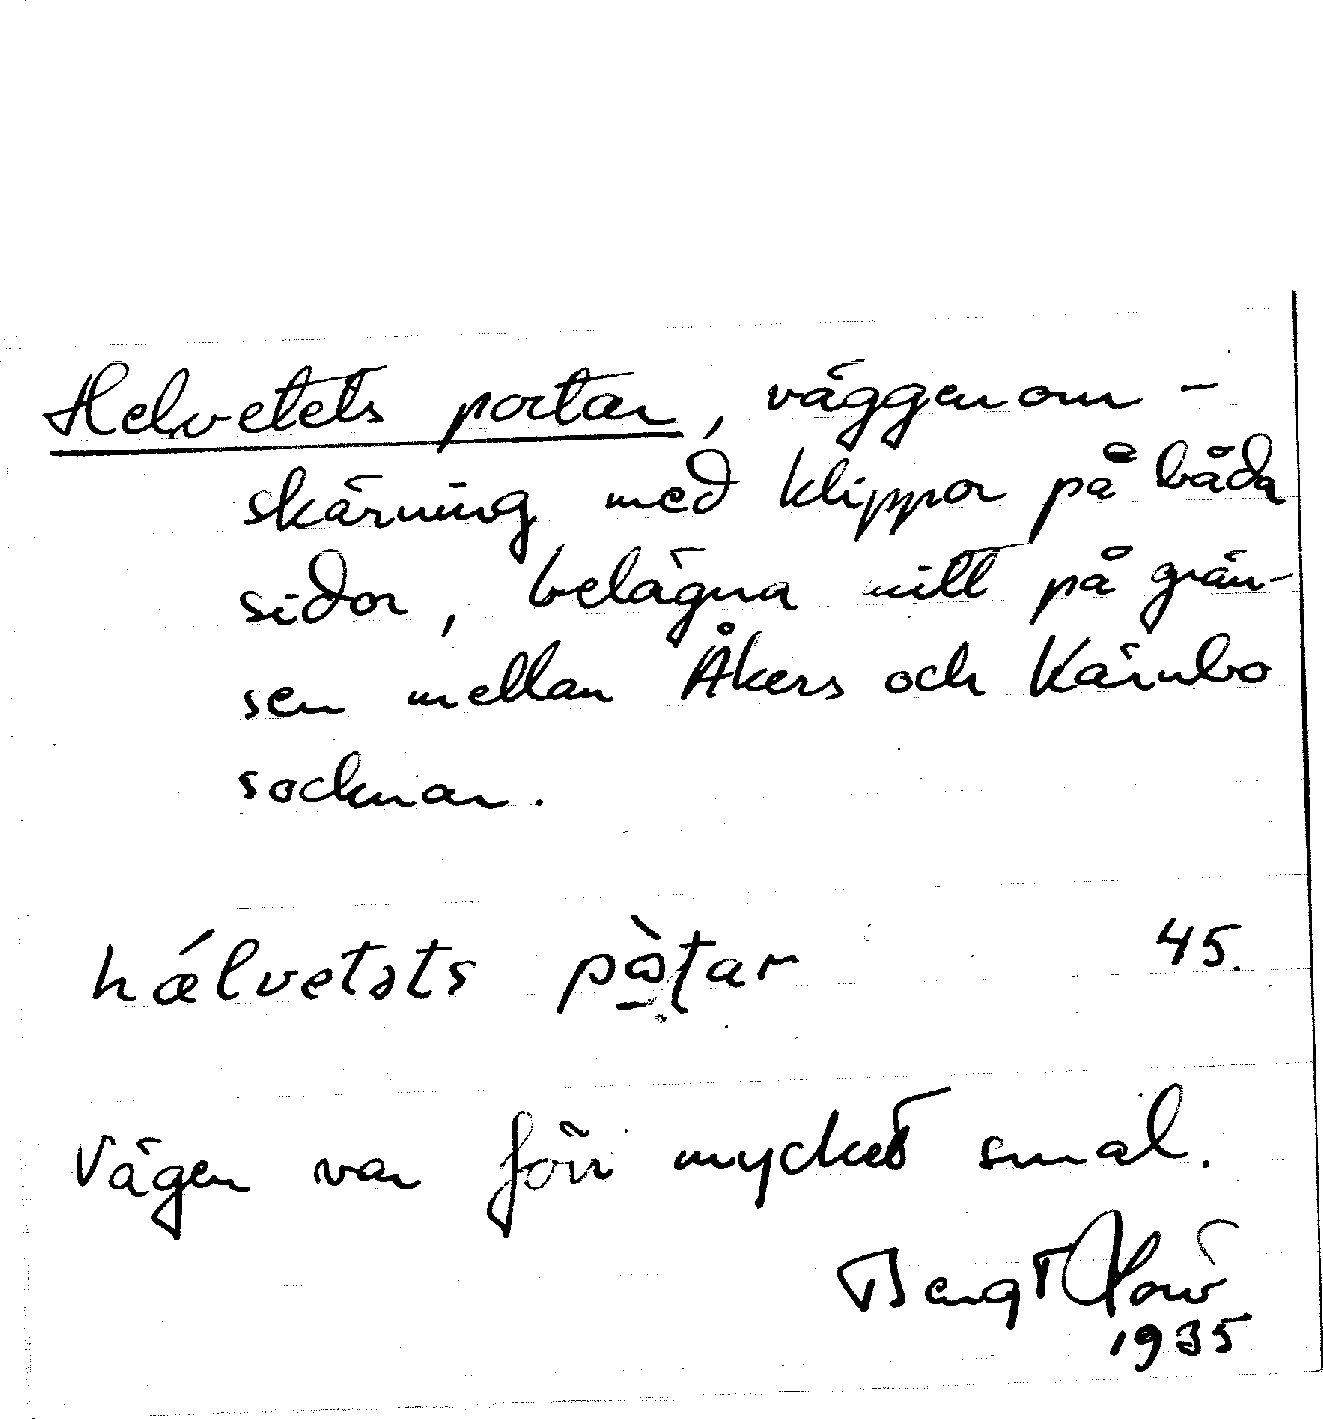 Helvetets portar, väggenom-
skärning med klippor på båda
sidor, belägna mitt på grän-
sen mellan Åkers och Kärnbo
socknar.
hǽlvetəts pò̱ţar 45.
Vägen var förr mycket smal.
Bengt
1935